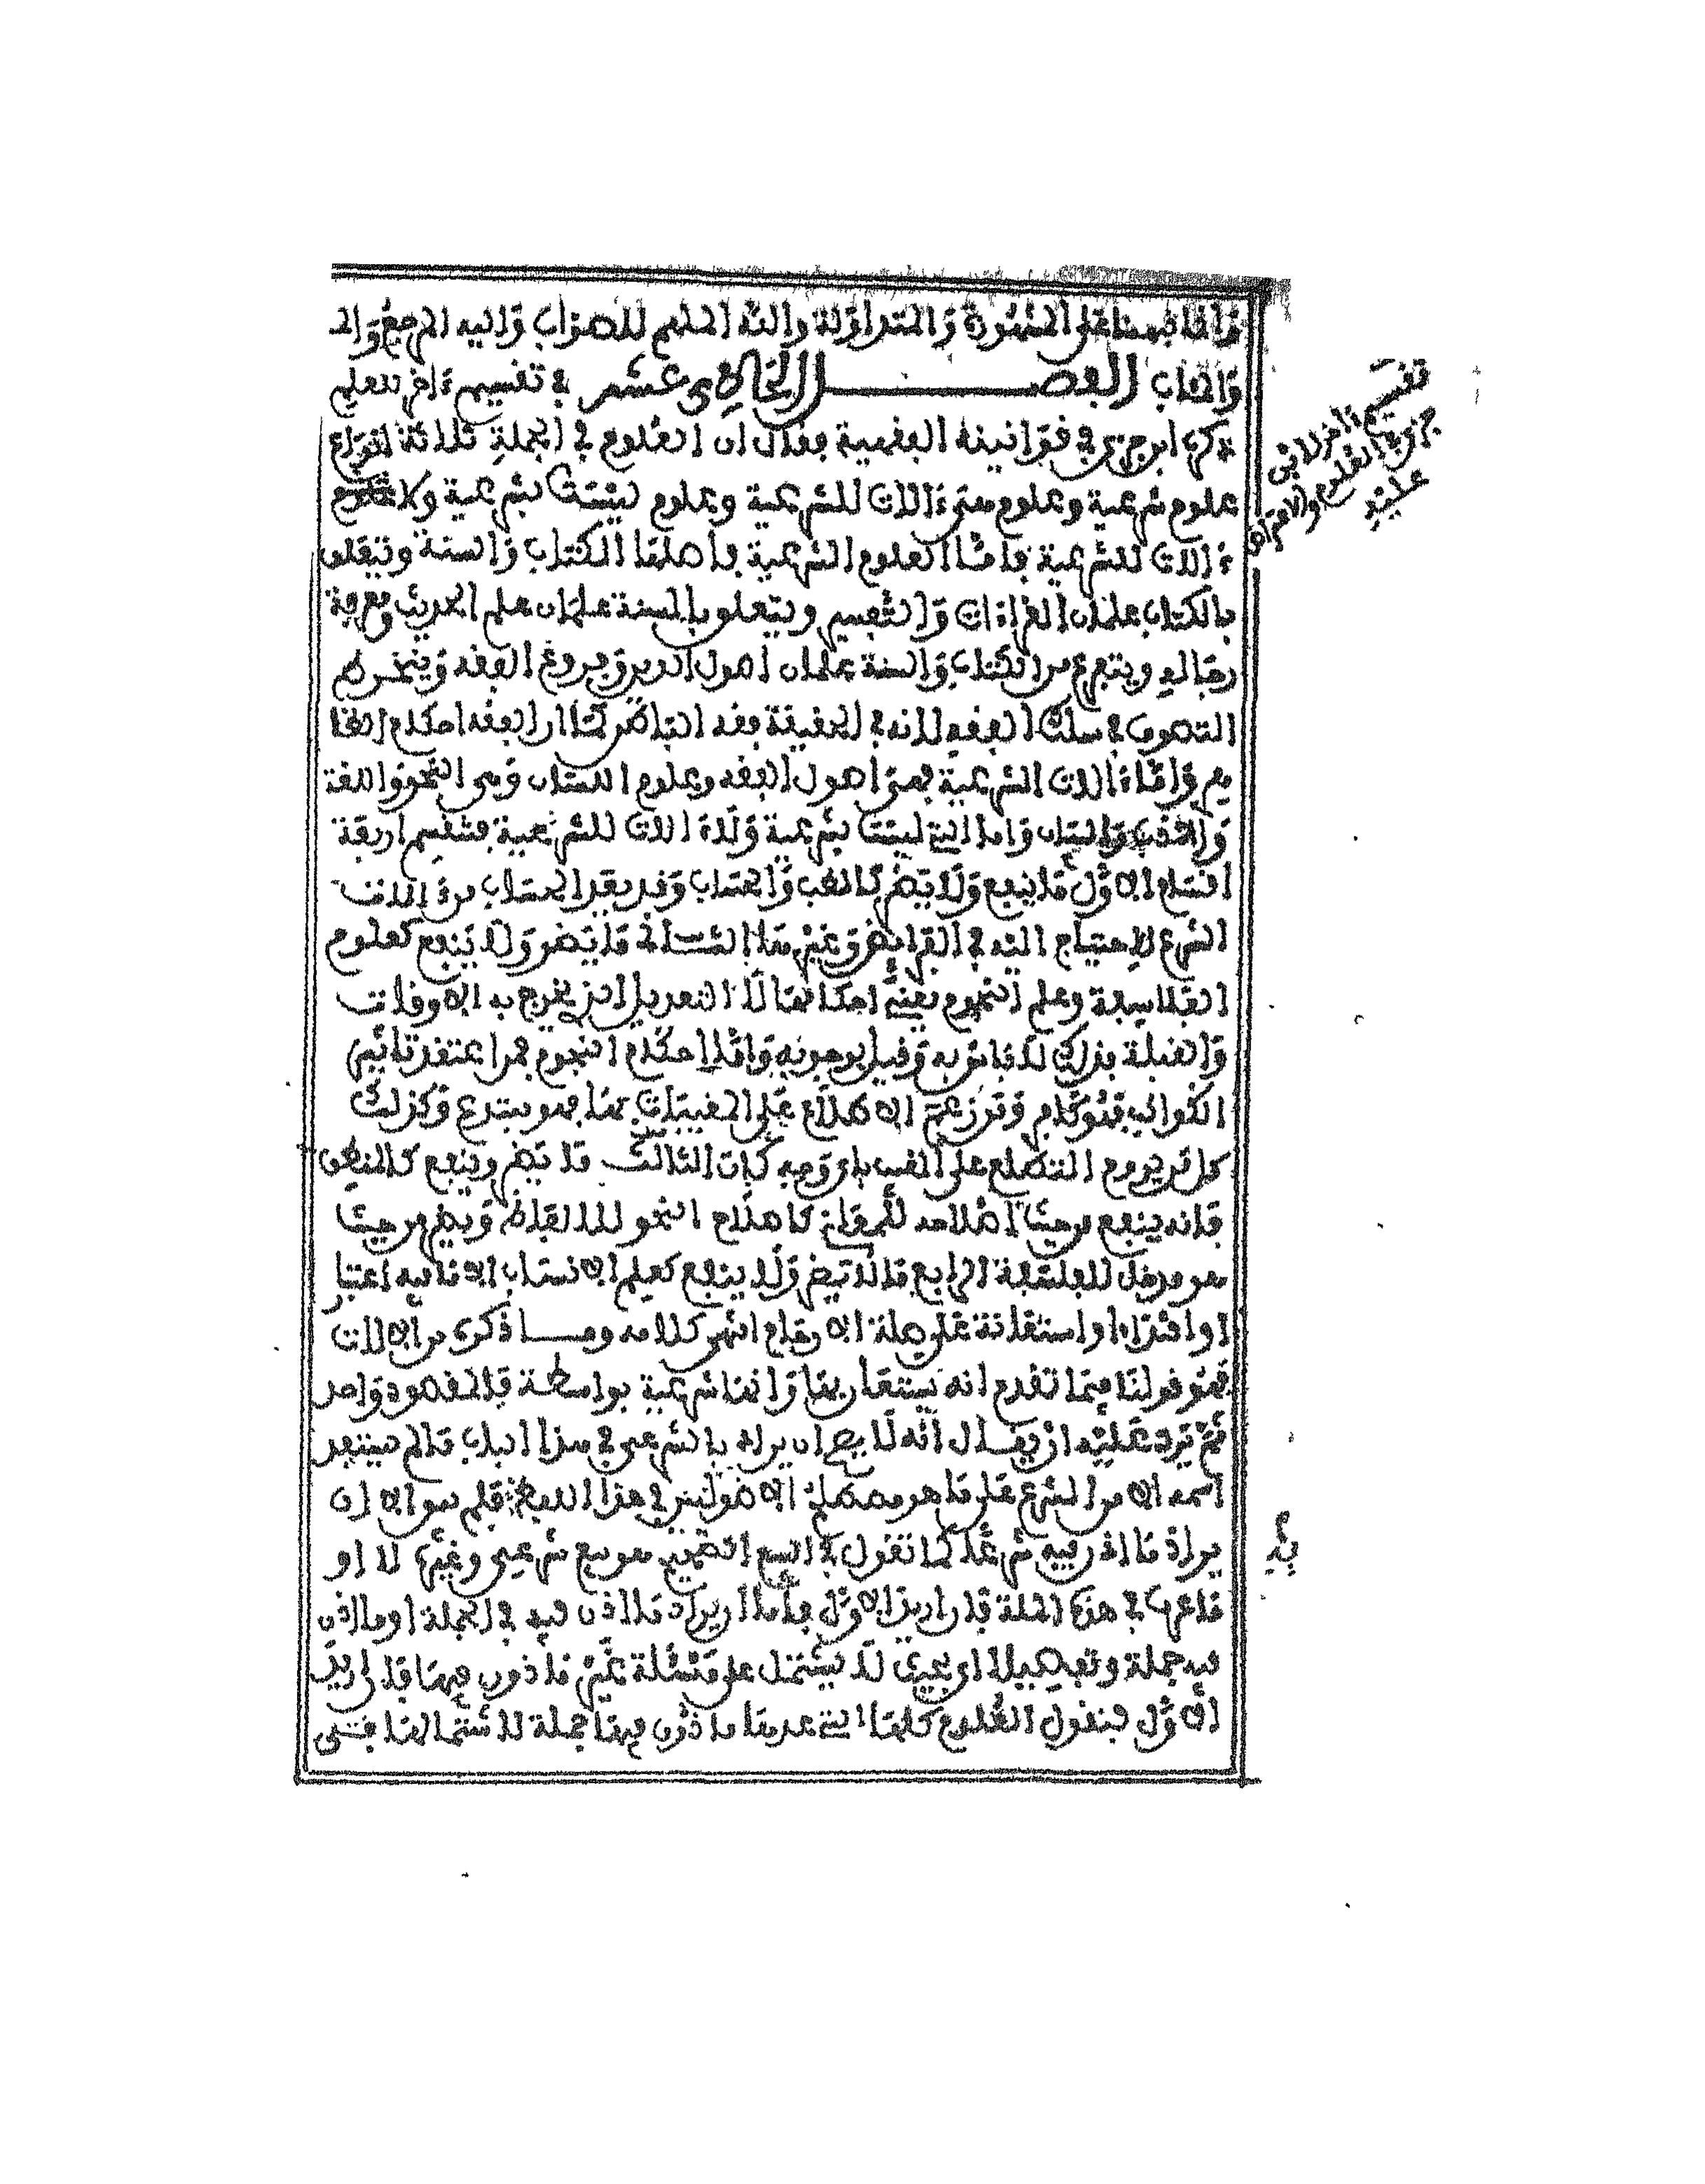 وإنما نبهنا على المشهورة والمتداولة والله الملهم للصواب وإليه المرجع والـ
والمئاب الفصـــــل الحادي عشر في تقسيم ءاخر للعلم
ذكره ابن جزي في قوانينه الفقهية فقال ان العلوم في الجملة ثلاثة انواع
علوم شرعية وعلوم هي ءالات للشرعية وعلوم ليست بشرعية ولا
ءالات للشرعية فاما العلوم الشرعية فاصلها الكتاب والسنة ويتعلق
بالكتاب علمان القراءات والتفسير ويتعلق بالسنة علمان علم الحديث ومعرفة
رجاله ويتفرع من الكتاب والسنة علمان اصول الدين وفروع الفقه وينخرط
التصوف في سلك الفقه لانه في الحقيقة فقه الباطن كما ان الفقه احكام الظا
هر واما ءالات الشرعية فهي اصول الفقه وعلوم اللسان وهي النحو واللغة
والادب والبيان واما التي ليست بشرعية ولا ءالات للشرعية فتنقسم اربعة
اقسام الاول ما ينفع ولا يضر كالطب والحساب وقد يعد الحساب من ءالات
الشرع للاحتياج اليه في الفرايض وغيرها الثاني ما يضر ولا ينفع كعلوم
الفلاسفة وعلم النجوم نعني احكامها لا التعديل الذي يخرج به الاوقات
والقبلة فذلك لا باس به وقيل بوجوبه واما احكام النجوم فمن اعتقد تاثير
الكواكب فهو كافر ومن زعم الاطلاع على المغيبات بها فهو مبتدع وكذلك
كل من يروم التطلع على الغيب باي وجه كان الثالث ما يضر وينفع كالمنطق
فانه ينفع من حيث اصلاحه للمعاني كاصلاح النحو للالفاظ ويضر من حيث
هو مدخل للفلسفة الرابع ما لا يضر ولا ينفع كعلم الانساب الا ما فيه اعتبا
او اقتداء او استعانة على صلة الارحام انتهى كلامه ومـــا ذكره من الالات
فهو قولنا فيما تقدم انه يستعان بها وانها شرعية بواسطة فالمقصود واحد
ثم يرد عليه ان يقال انه لا يصح ان يراد بالشرعي في هذا الباب ما لم يستفد
اسمه الا من الشرع على ما هو مصطلح الاصوليين في هذا اللفظ فلم يبق الا ان
يراد ما اذن فيه شرعا كما تقول في البيع الصحيح هو بيع شرعي وغيره لا او
ما عرف في هذه الملة فان اريد الاول فاما ان يراد ما اذن فيه في الجملة او ما اذن
فيه جملة وتفصيلا اي بحيث لا يشتمل على مسئلة غير ماذون فيها فان اريد
الاول فنقول العلوم كلها التي عدها ماذون فيها جملة لاشتمالها حتى
تقسيم ءاخر لابن
جزي في العلوم والاعتراض
عليه